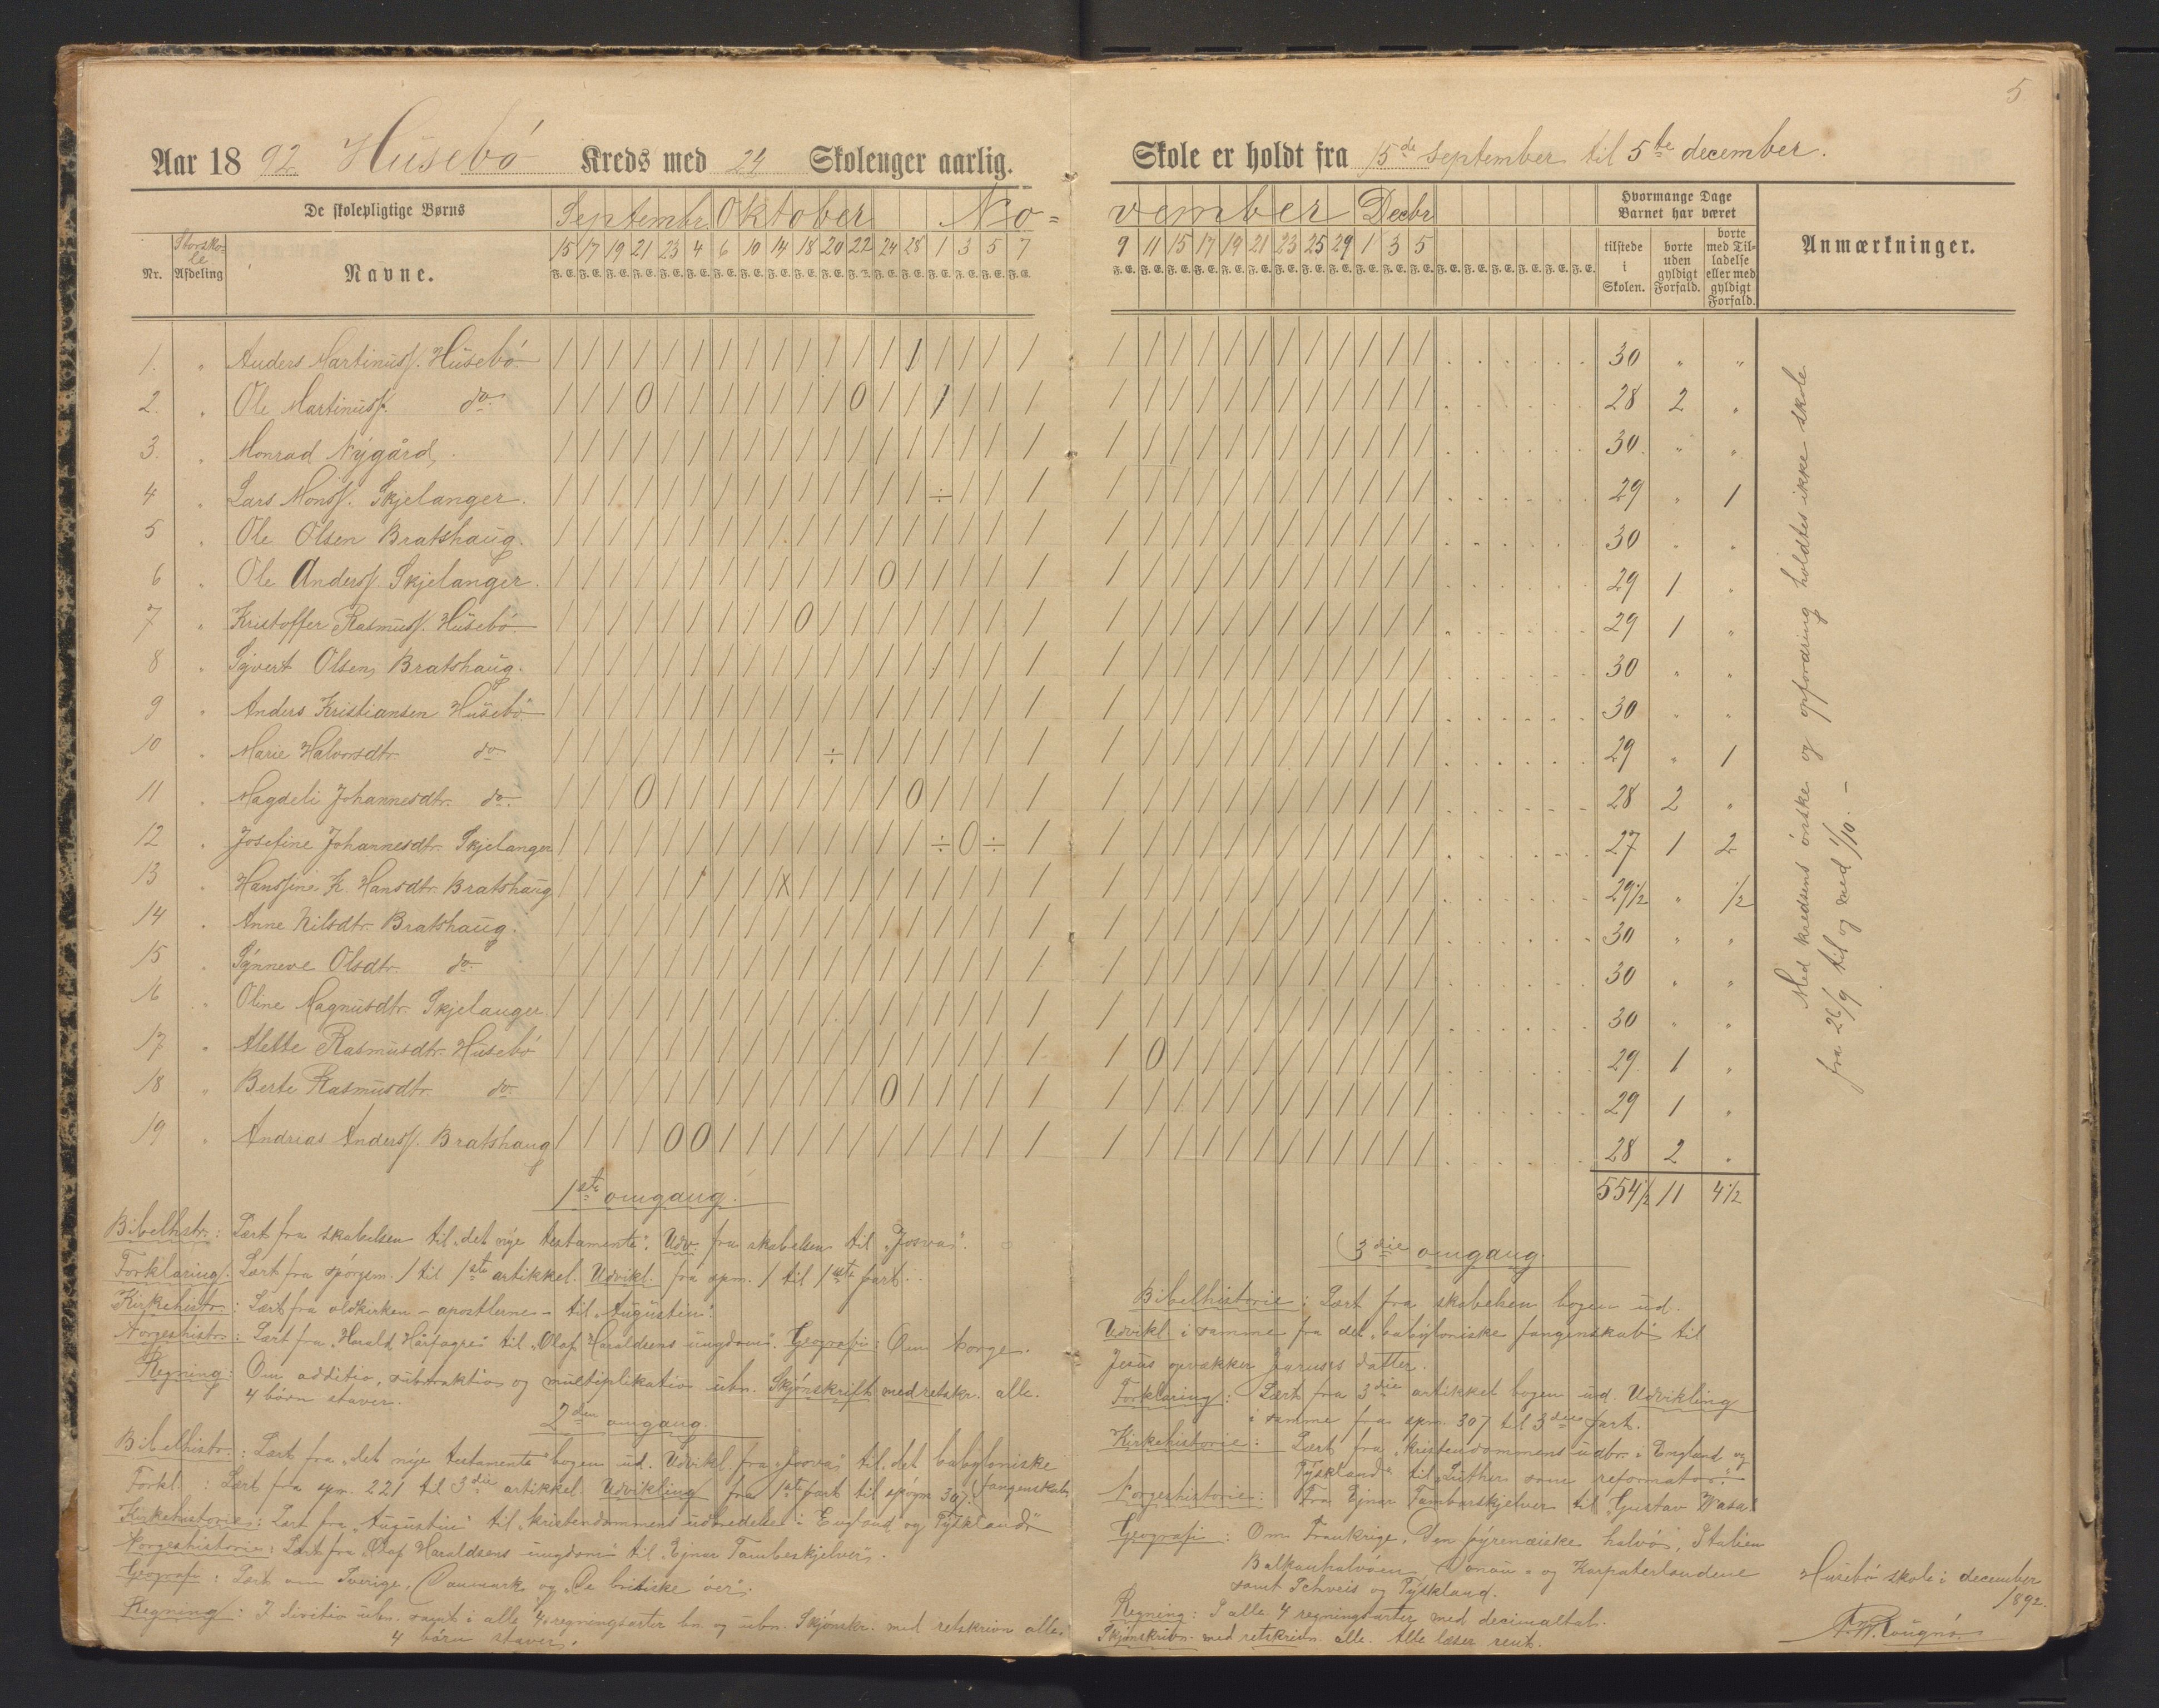 5
Aar 1892. Husebö Kreds med 24 Skoleuger aarlig.
De skolepligtige Børns
Septembr Oktober No=
Storsko-
le
Nr. Afdeling Navne.
15 17 19 21 23 4 6 10 14 18 20 22 24 28 1 3 5 7
F. E. F. E. F. E. F. E. F. E. F. E. F. E. F. E. F. E. F. E. F. E. F. E. F. E. F. E. F. E. F. E. F. E. F. E.
1. " Anders Martinuss. Husebö / / / / / / / / / / / / / / / / / /
2. " Ole Martinuss. do / / / 0 / / / / / / / 0 / / / / / /
3. " Monrad Nygård, / / / / / / / / / / / / / / / / / /
4 " Lars Monss. Skjelanger. / / / / / / / / / / / / / / ÷ / / /
5 " Ole Olsen Bratshaug. / / / / / / / / / / / / / / / / / /
6 " Ole Anderss. Skjelanger. / / / / / / / / / / / / 0 / / / / /
7 " Kristoffer Rasmuss. Husebö / / / / / / / / / 0 / / / / / / / /
8 " Syvert Olsen Bratshaug. / / / / / / / / / / / / / / / / / /
9 " Anders Kristiansen Husebö / / / / / / / / / / / / / / / / / /
10 " Marie Halvorsdtr. do / / / / / / / / / / ÷ / / / / / / /
11 " Magdeli Johannesdtr. do. / / / 0 / / / / / / / / / 0 / / / /
12 " Josefine Johannesdtr. Skjelanger / / / / / / / / / / / / / / ÷ 0 ÷ /
13 " Hanssine K. Hansdtr. Bratshaug / / / / / / / / X / / / / / / / / /
14 " Anne Nilsdtr. Bratshaug. / / / / / / / / / / / / / / / / / /
15 " Synneve Olsdtr. do. / / / / / / / / / / / / / / / / / /
16 " Oline Magnusdtr. Skjelanger / / / / / / / / / / / / / / / / / /
17 " Alette Rasmusdtr. Husebö / / / / / / / / / / / / / / / / / /
18 " Berte Rasmusdtr. do. / / / / / / / / / / / / 0 / / / / /
19 " Andreas Anderss. Bratshaug / / / / 0 0 / / / / / / / / / / / /
1ste omgang.
Bibelhistr.: Lært fra skabelsen til "det nye testamente". Udv. fra skabelsen til "Josva".
Forklaring: Lært fra spörgsm. 1 til 1ste artikkel. Udvikl. fra spm. 1 til 1ste part.
Kirkehistr.: Lært fra oldkirken - apostlerne - til "Augustin".
Norgeshistr.: Lært fra "Harald Hårfagre" til "Olaf Haraldsens ungdom". Geografi: Om Norge.
Regning: Om additio, subtraktio og multiplikatio ubn. Skjönskrift med retskr. alle.
4 börn staver.
2den omgang.
Bibelhistr.: Lært fra "det nye testamente" bogen ud. Udvikl. fra "Josva" til "det babyloniske
fangenskab".
Forkl.: Lært fra spm. 221 til 3die artikkel. Udvikling fra 1ste part til spörgm 307.
Kirkehistorie: Lært fra "Augustin" til "kristendommens udbredelse i England og Tyskland"
Norgeshistorie: Lært fra "Olaf Haraldsens ungdom" til "Ejnar Tambeskjelver".
Geografi: Lært om Sverige, Danmark og "De britiske öer".
Regning: I divitio ubn. samt i alle 4 regningsarter bn. og ubn. Skjönskr. med retskrivn alle.
4 börn staver.
Skole er holdt fra 15de september til 5te december.
vember Decbr
Hvormange Dage
Barnet har været
9 11 15 17 19 21 23 25 29 1 3 5
F. E. F. E. F. E. F. E. F. E. F. E. F. E. F. E. F. E. F. E. F. E. F. E. F. E. F. E. F. E. F. E. F. E. F. E.
tilstede
i
Skolen.
borte
uden
gyldigt
Forfald.
borte
med Til-
ladelse
eller med
gyldigt
Forfald.
Anmærkninger.
/ / / / / / / / / / / / 30 " "
/ / / / / / / / / / / / 28 2 "
/ / / / / / / / / / / / 30 " "
/ / / / / / / / / / / / 29 " 1
/ / / / / / / / / / / / 30 " "
/ / / / / / / / / / / / 29 1 "
/ / / / / / / / / / / / 29 1 "
/ / / / / / / / / / / / 30 " "
/ / / / / / / / / / / / 30 " "
/ / / / / / / / / / / / 29 " 1
/ / / / / / / / / / / / 28 2 "
/ / / / / / / / / / / / 27 1 2
/ / / / / / / / / / / / 29 1/2 " 1/2
/ / / / / / / / / / / / 30 " "
/ / / / / / / / / / / / 30 " "
/ / / / / / / / / / / / 30 " "
/ 0 / / / / / / / / / / 29 1 "
/ / / / / / / / / / / / 29 1 "
/ / / / / / / / / / / / 28 2 "
554 1/2 11 4 1/2
Med kredsens önske og opfordring holdtes ikke skole
fra 26/9 til og med 1/10. -
3die omgang.
Bibelhistorie: Lært fra skabelsen bogen ud.
Udvikl. i samme fra det "babyloniske fangenskab" til
Jesus opvækker Jaruses datter.
Forklaring: Lært fra 3die artikkel bogen ud. Udvikling
i samme fra spm. 307 til 3die part.
Kirkehistorie: Lært fra "kristendommens udbr. i England og
Tyskland" til "Luther som reformator".
Norgeshistorie: Fra Ejnar Tambarskjelver til Gustav Wasa
Geografi: Om Frankrige, Den pyrenæiske halvö, Italien
Balkanhalvöen, Donau- og Karpaterlandene
samt Schveis og Tyskland.
Regning: I alle 4 regningsarter med decimaltal.
Skjönskrivn. med retskrivn. alle. Alle læser rent.
Husebö skole i december
1892.